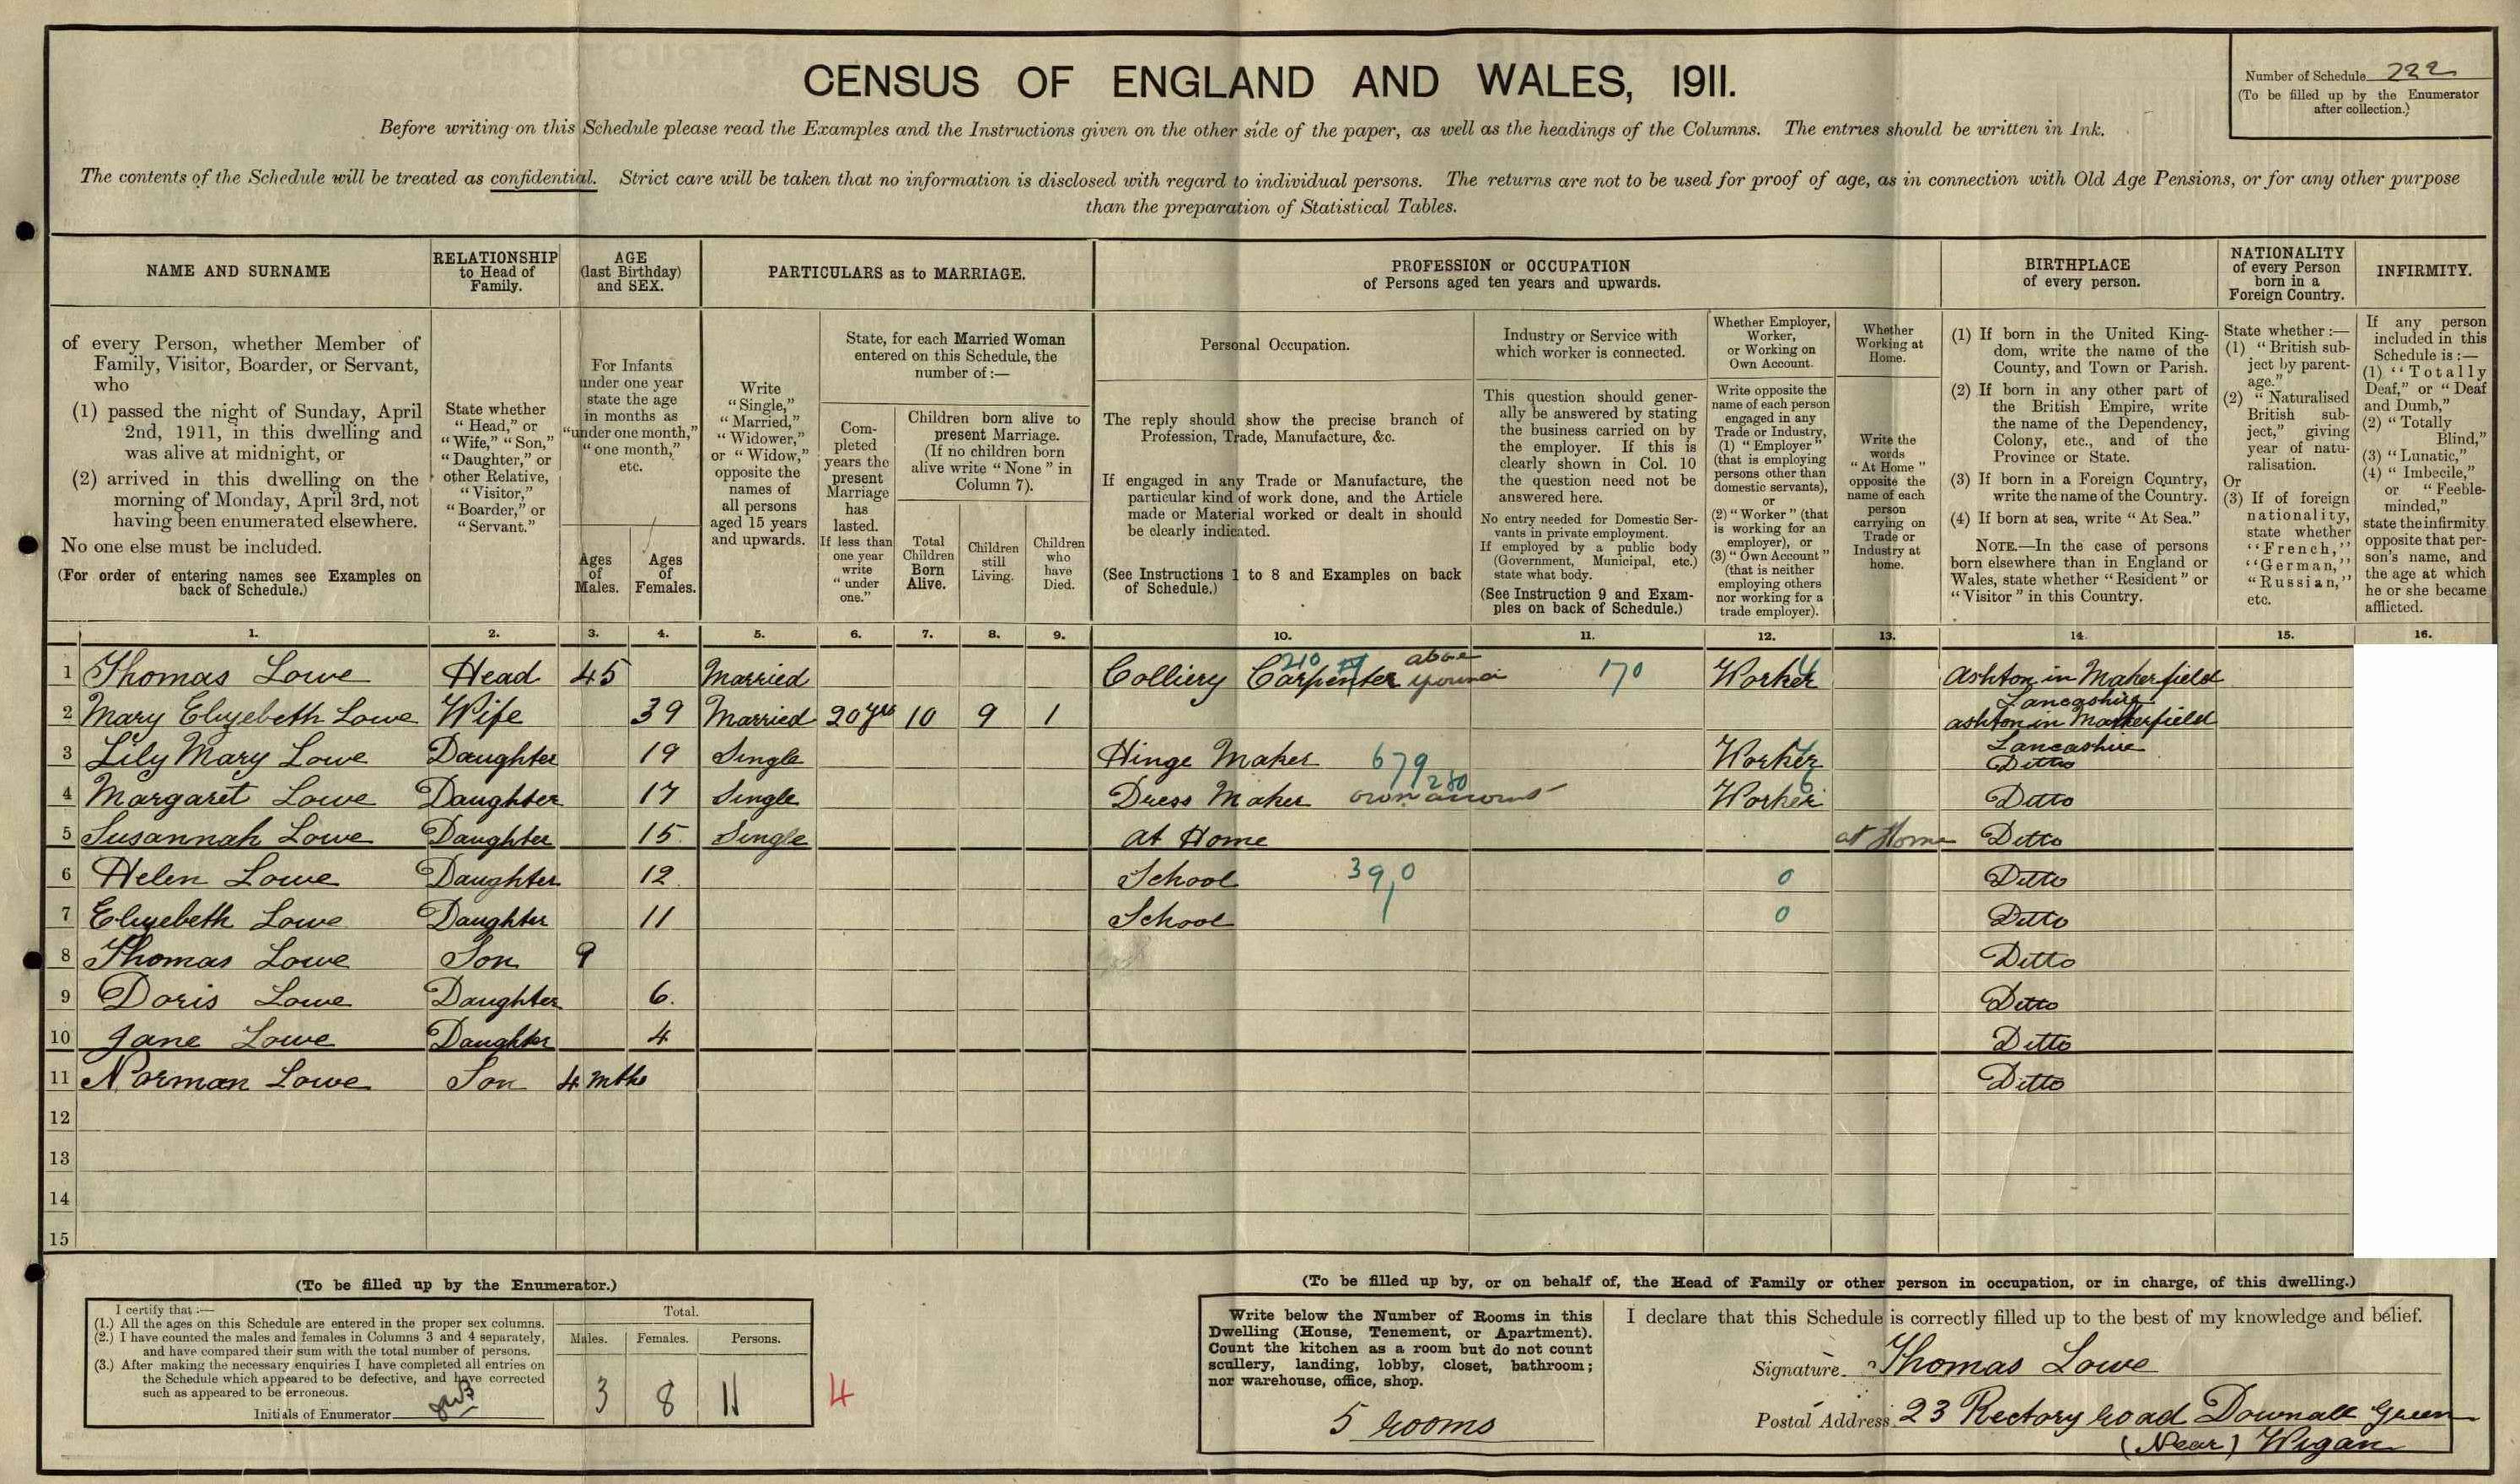 CENSUS OF ENGLAND AND WALES, 1911.
Number of Schedule 222
(To be filled up by the Enumerator
after collection.)
Before writing on this Schedule please read the Examples and the Instructions given on the other side of the paper, as well as the headings of the Columns. The entries should be written in Ink.
The contents of the Schedule will be treated as confidential. Strict care will be taken that no information is disclosed with regard to individual persons. The returns are not to be used for proof of age, as in connection with Old Age Pensions, or for any other purpose
than the preparation of Statistical Tables.
NAME AND SURNAME
of every Person, whether Member of
Family, Visitor, Boarder, or Servant,
who
(1) passed the night of Sunday, April
2nd, 1911, in this dwelling and
was alive at midnight, or
(2) arrived in this dwelling on the
morning of Monday, April 3rd, not
having been enumerated elsewhere.
No one else must be included.
(For order of entering names see Examples on
back of Schedule.)
RELATIONSHIP
to Head of
Family.
State whether
"Head," or
"Wife," "Son,"
"Daughter," or
other Relative,
"Visitor,"
"Boarder," or
"Servant."
AGE
(last Birthday)
and SEX.
For Infants
under one year
state the age
in months as
"under one month,"
"one month,"
etc.
Ages
of
Males.
Ages
of
Females.
PARTICULARS as to MARRIAGE.
Write
"Single,"
"Married,"
"Widower,"
or "Widow,"
opposite the
names of
all persons
aged 15 years
and upwards.
State, for each Married Woman
entered on this Schedule, the
number of:—
Com-
pleted
years the
present
Marriage
has
lasted.
If less than
one year
write
"under
one."
Children born alive to
present Marriage.
(If no children born
alive write "None" in
Column 7).
Total
Children
Born
Alive.
Children
still
Living.
Children
who
have
Died.
PROFESSION or OCCUPATION
of Persons aged ten years and upwards.
Personal Occupation.
The reply should show the precise branch of
Profession, Trade, Manufacture, &c.
If engaged in any Trade or Manufacture, the
particular kind of work done, and the Article
made or Material worked or dealt in should
be clearly indicated.
(See Instructions 1 to 8 and Examples on back
of Schedule.)
Industry or Service with
which worker is connected.
This question should gener-
ally be answered by stating
the business carried on by
the employer. If this is
clearly shown in Col. 10
the question need not be
answered here.
No entry needed for Domestic Ser-
vants in private employment.
If employed by a public body
(Government, Municipal, etc.)
state what body.
(See Instruction 9 and Exam-
ples on back of Schedule.)
Whether Employer,
Worker,
or Working on
Own Account.
Write opposite the
name of each person
engaged in any
Trade or Industry,
(1) "Employer"
(that is employing
persons other than
domestic servants),
or
(2) "Worker" (that
is working for an
employer), or
(3) "Own Account"
(that is neither
employing others
nor working for a
trade employer).
Whether
Working at
Home.
Write the
words
"At Home"
opposite the
name of each
person
carrying on
Trade or
Industry at
home.
BIRTHPLACE
of every person.
(1) If born in the United King-
dom, write the name of the
County, and Town or Parish.
(2) If born in any other part of
the British Empire, write
the name of the Dependency,
Colony, etc., and of the
Province or State.
(3) If born in a Foreign Country,
write the name of the Country.
(4) If born at sea, write "At Sea."
NOTE.—In the case of persons
born elsewhere than in England or
Wales, state whether "Resident" or
"Visitor" in this Country.
NATIONALITY
of every Person
born in a
Foreign Country.
State whether:—
(1) "British sub-
ject by parent-
age."
(2) "Naturalised
British sub-
ject," giving
year of natu-
ralisation.
Or
(3) If of foreign
nationality,
state whether
"French,"
"German,"
"Russian,"
etc.
INFIRMITY.
If any person
included in this
Schedule is:—
(1) "Totally
Deaf," or "Deaf
and Dumb,"
(2) "Totally
Blind,"
(3) "Lunatic,"
(4) "Imbecile,"
or "Feeble-
minded,"
state the infirmity
opposite that per-
son's name, and
the age at which
he or she became
afflicted.
1. 2. 3. 4. 5. 6. 7. 8. 9. 10. 11. 12. 13. 14. 15. 16.
1 Thomas Lowe Head 45 Married Colliery Carpenter 210 above 170 Worker Ashton in Makerfield
Lancashire
2 Mary Elizebeth Lowe Wife 39 Married 20 yrs 10 9 1 ashton in Makerfield
Lancashire
3 Lily Mary Lowe Daughter 19 Single Hinge Maker 679 Worker Ditto
4 Margaret Lowe Daughter 17 Single Dress Maker own account 280 Worker 6 Ditto
5 Susannah Lowe Daughter 15 Single at Home at Home Ditto
6 Helen Lowe Daughter 12 School 390 0 Ditto
7 Elizebeth Lowe Daughter 11 School 0 Ditto
8 Thomas Lowe Son 9 Ditto
9 Doris Lowe Daughter 6. Ditto
10 Jane Lowe Daughter 4 Ditto
11 Norman Lowe Son 4 mths Ditto
12
13
14
15
(To be filled up by the Enumerator.)
I certify that:—
(1.) All the ages on this Schedule are entered in the proper sex columns.
(2.) I have counted the males and females in Columns 3 and 4 separately,
and have compared their sum with the total number of persons.
(3.) After making the necessary enquiries I have completed all entries on
the Schedule which appeared to be defective, and have corrected
such as appeared to be erroneous.
Initials of Enumerator
Total.
Males. Females. Persons.
3 8 11
4
(To be filled up by, or on behalf of, the Head of Family or other person in occupation, or in charge, of this dwelling.)
Write below the Number of Rooms in this
Dwelling (House, Tenement, or Apartment).
Count the kitchen as a room but do not count
scullery, landing, lobby, closet, bathroom;
nor warehouse, office, shop.
5 rooms
I declare that this Schedule is correctly filled up to the best of my knowledge and belief.
Signature Thomas Lowe
Postal Address 23 Rectory road Downall Green
(Near) Wigan